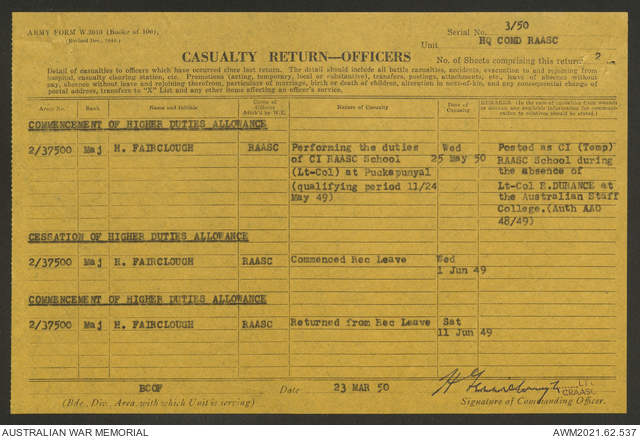 ARMY FORM W.3010 (Books of 100).
(Revised Dec., 1944.)
Serial No. 3/50
Unit HQ COMD RAASC
CASUALTY RETURN—OFFICERS
No. of Sheets comprising this return 2
Detail of casualties to officers which have occurred since last return. The detail should include all battle casualties, accidents, evacuation to and rejoining from
hospital, casualty clearing station, etc. Promotions (acting, temporary, local or substantive), transfers, postings, attachments, etc., leave of absence without
pay, absence without leave and rejoining therefrom, particulars of marriage, birth or death of children, alteration in next-of-kin, and any consequential change of
postal address, transfers to "X" List and any other items affecting an officer's service.
Army No. Rank Name and Initials Corps of Officers Attch'd by W.E. Nature of Casualty Date of Casualty REMARKS. (In the case of casualties from wounds or disease, any available information for communication to relatives should be stated.)
COMMENCEMENT OF HIGHER DUTIES ALLOWANCE
2/37500 Maj H. FAIRCLOUGH RAASC Performing the duties Wed Posted as CI (Temp)
of CI RAASC School 25 May 50 RAASC School during
(Lt-Col) at Puckapunyal the absence of
(qualifying period 11/24 Lt-Col R.DURANCE at
May 49) the Australian Staff
College.(Auth AAO
48/49)
CESSATION OF HIGHER DUTIES ALLOWANCE
2/37500 Maj H. FAIRCLOUGH RAASC Commenced Rec Leave Wed
1 Jun 49
COMMENCEMENT OF HIGHER DUTIES ALLOWANCE
2/37500 Maj H. FAIRCLOUGH RAASC Returned from Rec Leave Sat
11 Jun 49
BCOF Date 23 MAR 50 H Fairclough
CRAASC
(Bde., Div., Area, with which Unit is serving) Signature of Commanding Officer.
AUSTRALIAN WAR MEMORIAL AWM2021.62.537